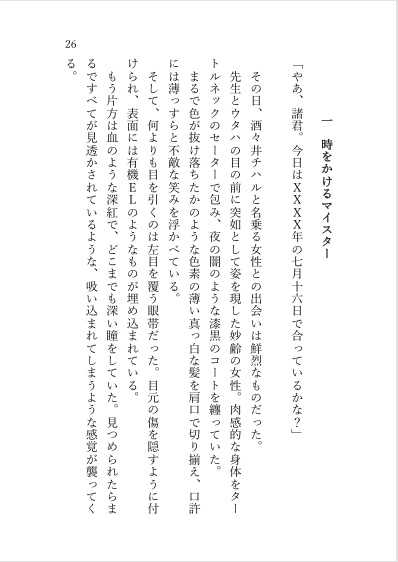 26
一　時をかけるマイスター
「やあ、諸君。今日はＸＸＸＸ年の七月十六日で合っているかな？」
その日、酒々井チハルと名乗る女性との出会いは鮮烈なものだった。
先生とウタハの目の前に突如として姿を現した妙齢の女性。肉感的な身体をター
トルネックのセーターで包み、夜の闇のような漆黒のコートを纏っていた。
まるで色が抜け落ちたかのような色素の薄い真っ白な髪を肩口で切り揃え、口許
には薄っすらと不敵な笑みを浮かべている。
そして、何よりも目を引くのは左目を覆う眼帯だった。目元の傷を隠すように付
けられ、表面には有機ＥＬのようなものが埋め込まれている。
もう片方は血のような深紅で、どこまでも深い瞳をしていた。見つめられたらま
るですべてが見透かされているような、吸い込まれてしまうような感覚が襲ってく
る。